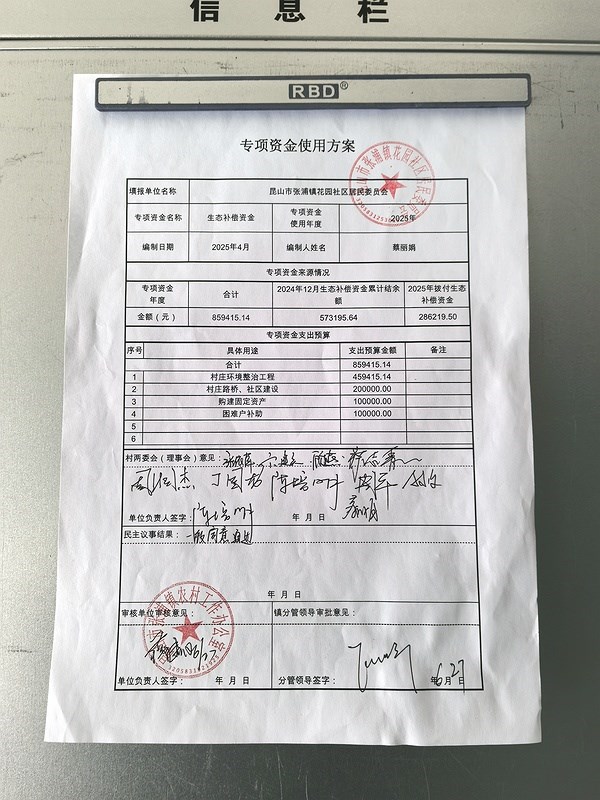 信息栏
RBD®
专项资金使用方案
填报单位名称 昆山市张浦镇花园社区居民委员会
专项资金名称 生态补偿资金 专项资金使用年度 2025年
编制日期 2025年4月 编制人姓名 蔡丽娟
专项资金来源情况
专项资金年度 合计 2024年12月生态补偿资金累计结余额 2025年拨付生态补偿资金
金额（元） 859415.14 573195.64 286219.50
专项资金支出预算
序号 具体用途 支出预算金额 备注
合计 859415.14
1 村庄环境整治工程 459415.14
2 村庄路桥、社区建设 200000.00
3 购建固定资产 100000.00
4 困难户补助 100000.00
5
6
村两委会（理事会）意见：
单位负责人签字： 年 月 日
民主议事结果：一致同意通过
年 月 日
审核单位审核意见： 镇分管领导审批意见：
单位负责人签字： 年 月 日 分管领导签字： 6月27日